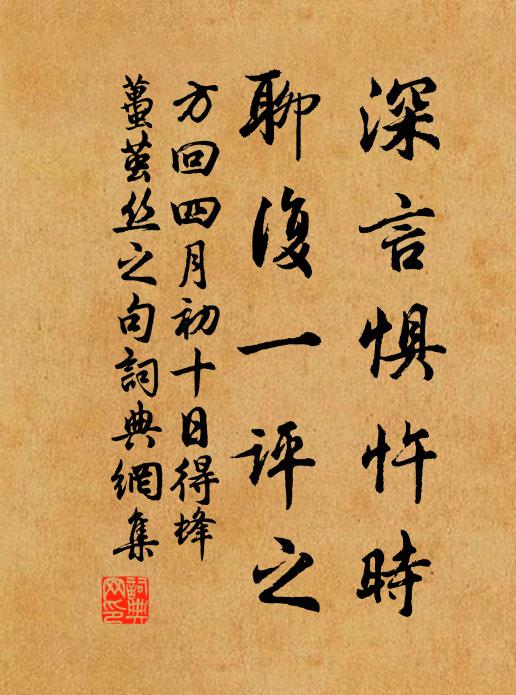 深言惧忤時
聊復一評之
方回四月初十日得蜂
蠆蚕丝之句詞典網集
詞典网印